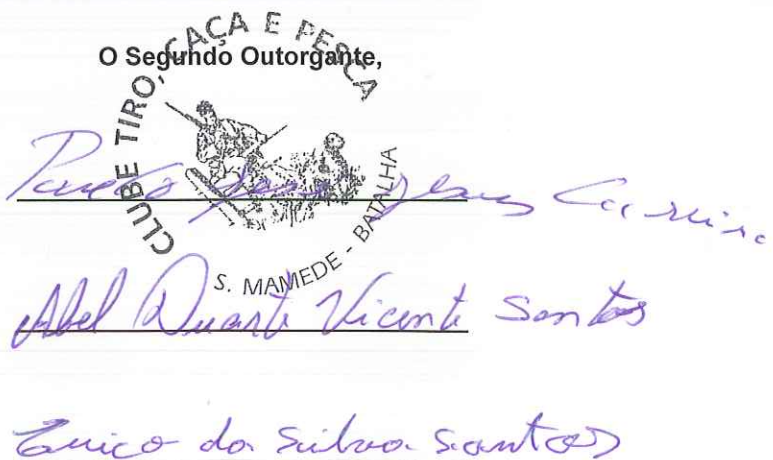 O Segundo Outorgante,
CLUBE TIRO, CAÇA E PESCA
S. MAMEDE - BATALHA
Jesus Carreira
Abel Duarte Vicente Santos
Eurico da Silva Santos